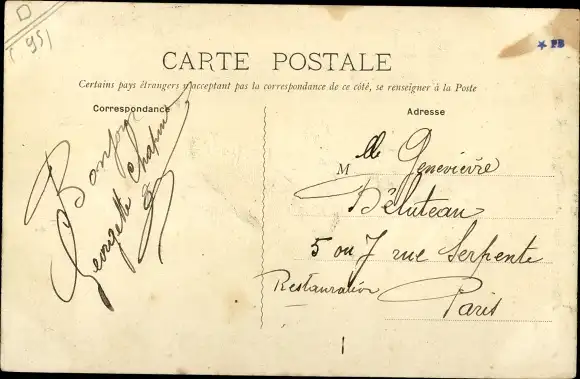 D
(95)
★ PB
CARTE POSTALE
Certains pays étrangers n'acceptant pas la correspondance de ce côté, se renseigner à la Poste
Correspondance
Adresse
Bonjour
Georgette Chapin
Mlle Geneviève
Déluteau
5 ou 7 rue Serpente
Restauration
Paris